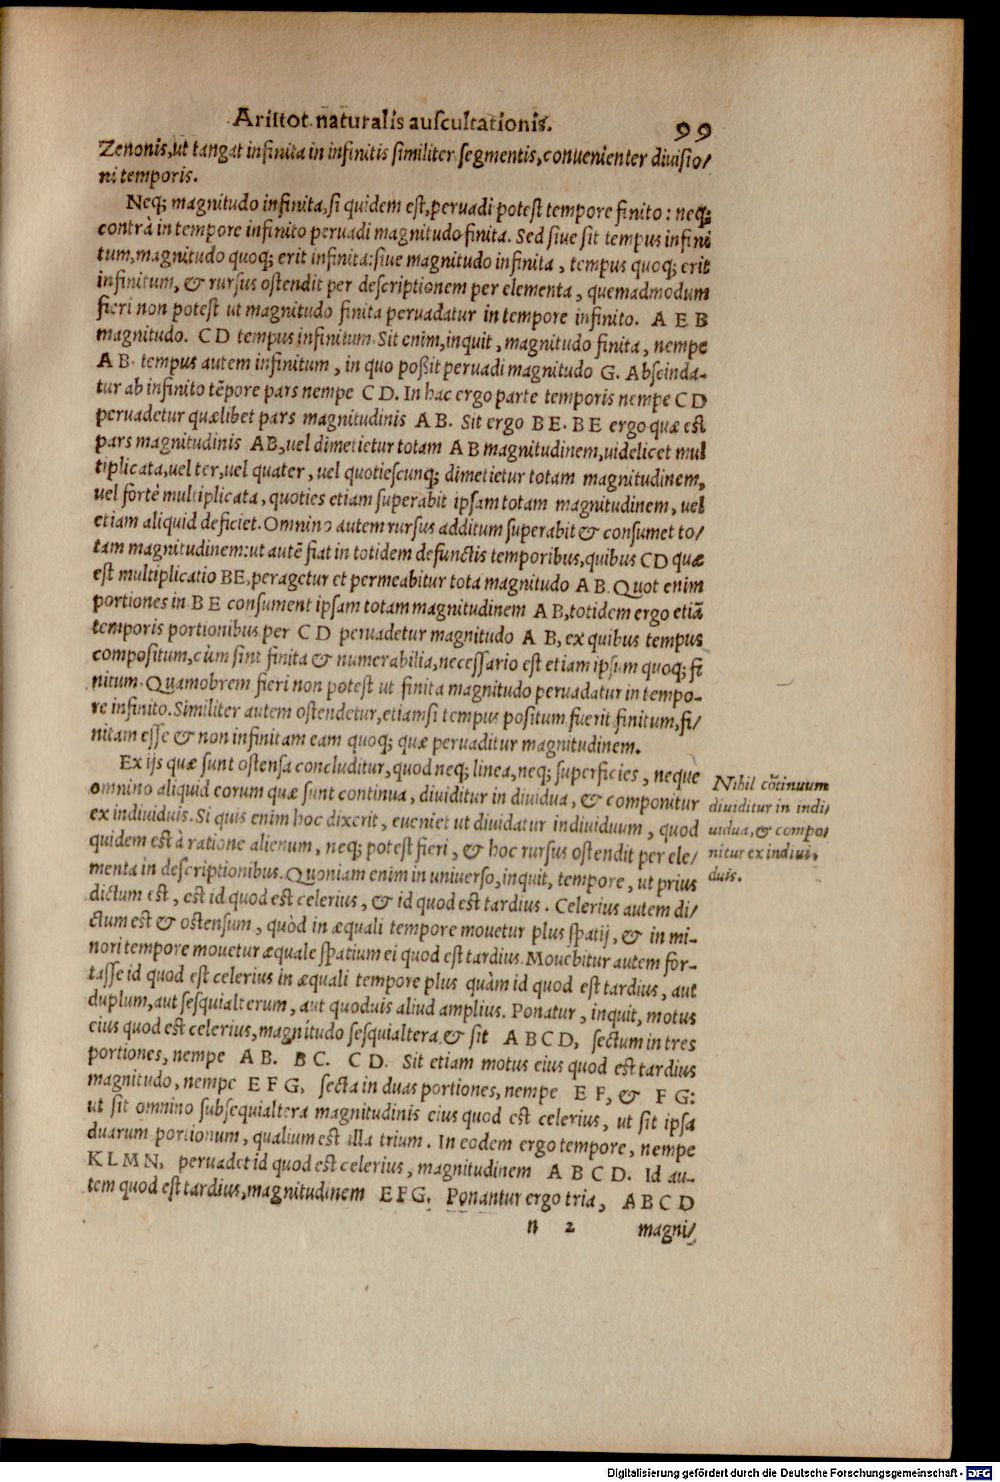 Aristot. naturalis auscultationis. 99
Zenonis, ut tangat infinita in infinitis similiter segmentis, conuenienter diuisio/
ni temporis.
Neq; magnitudo infinita, si quidem est, peruadi potest tempore finito: neq;
contrà in tempore infinito peruadi magnitudo finita. Sed siue sit tempus infini
tum, magnitudo quoq; erit infinita: siue magnitudo infinita, tempus quoq; erit
infinitum, & rursus ostendit per descriptionem per elementa, quemadmodum
fieri non potest ut magnitudo finita peruadatur in tempore infinito. A E B
magnitudo. C D tempus infinitum. Sit enim, inquit, magnitudo finita, nempe
A B. tempus autem infinitum, in quo poßit peruadi magnitudo G. Abscinda-
tur ab infinito tẽpore pars nempe C D. In hac ergo parte temporis nempe C D
peruadetur quælibet pars magnitudinis A B. Sit ergo B E. B E ergo quæ est
pars magnitudinis AB, uel dimetietur totam A B magnitudinem, uidelicet mul
tiplicata, uel ter, uel quater, uel quotiescunq; dimetietur totam magnitudinem,
uel fortè multiplicata, quoties etiam superabit ipsam totam magnitudinem, uel
etiam aliquid deficiet. Omnino autem rursus additum superabit & consumet to/
tam magnitudinem: ut autẽ fiat in totidem defunctis temporibus, quibus CD quæ
est multiplicatio BE, peragetur et permeabitur tota magnitudo A B. Quot enim
portiones in B E consument ipsam totam magnitudinem A B, totidem ergo etiã
temporis portionibus per C D peruadetur magnitudo A B, ex quibus tempus
compositum, cùm sint finita & numerabilia, necessario est etiam ipsum quoq; fi
nitum. Quamobrem fieri non potest ut finita magnitudo peruadatur in tempo-
re infinito. Similiter autem ostendetur, etiamsi tempus positum fuerit finitum, fi/
nitam esse & non infinitam eam quoq; quæ peruaditur magnitudinem.
Ex ijs quæ sunt ostensa concluditur, quod neq; linea, neq; superficies, neque
omnino aliquid eorum quæ sunt continua, diuiditur in diuidua, & componitur
ex indiuiduis. Si quis enim hoc dixerit, eueniet ut diuidatur indiuiduum, quod
quidem est à ratione alienum, neq; potest fieri, & hoc rursus ostendit per ele/
menta in descriptionibus. Quoniam enim in uniuerso, inquit, tempore, ut prius
dictum est, est id quod est celerius, & id quod est tardius. Celerius autem di/
ctum est & ostensum, quòd in æquali tempore mouetur plus spatij, & in mi-
nori tempore mouetur æquale spatium ei quod est tardius. Mouebitur autem for-
tasse id quod est celerius in æquali tempore plus quàm id quod est tardius, aut
duplum, aut sesquialterum, aut quoduis aliud amplius. Ponatur, inquit, motus
eius quod est celerius, magnitudo sesquialtera & sit A B C D, sectum in tres
portiones, nempe A B. B C. C D. Sit etiam motus eius quod est tardius
magnitudo, nempe E F G, secta in duas portiones, nempe E F, & F G:
ut sit omnino subsequialtera magnitudinis eius quod est celerius, ut sit ipsa
duarum portionum, qualium est illa trium. In eodem ergo tempore, nempe
K L M N, peruadet id quod est celerius, magnitudinem A B C D. Id au-
tem quod est tardius, magnitudinem E F G. Ponantur ergo tria, A B C D
n 2 magni/
Nihil cõtinuum
diuiditur in indi/
uidua, & compo/
nitur ex indiui-
duis.
Digitalisierung gefördert durch die Deutsche Forschungsgemeinschaft - DFG